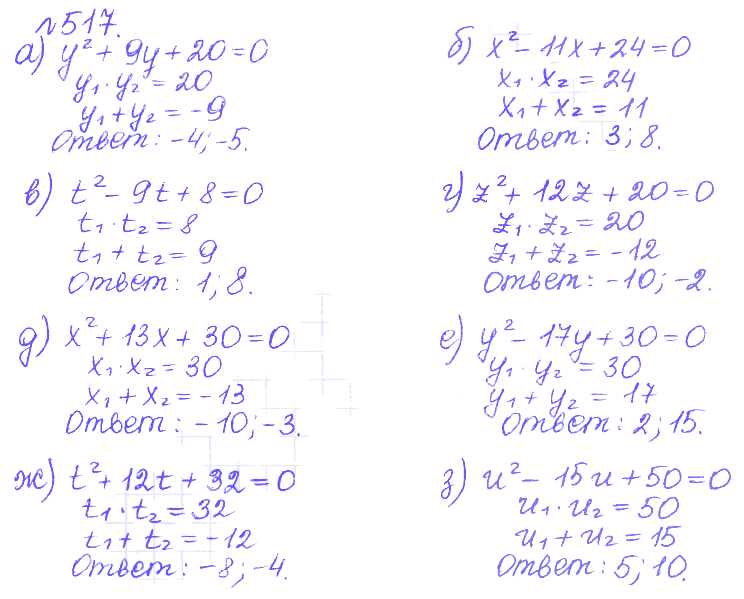 №517.
а) y² + 9y + 20 = 0
y₁ · y₂ = 20
y₁ + y₂ = -9
Ответ: -4; -5.
б) x² - 11x + 24 = 0
x₁ · x₂ = 24
x₁ + x₂ = 11
Ответ: 3; 8.
в) t² - 9t + 8 = 0
t₁ · t₂ = 8
t₁ + t₂ = 9
Ответ: 1; 8.
г) z² + 12z + 20 = 0
z₁ · z₂ = 20
z₁ + z₂ = -12
Ответ: -10; -2.
д) x² + 13x + 30 = 0
x₁ · x₂ = 30
x₁ + x₂ = -13
Ответ: -10; -3.
е) y² - 17y + 30 = 0
y₁ · y₂ = 30
y₁ + y₂ = 17
Ответ: 2; 15.
ж) t² + 12t + 32 = 0
t₁ · t₂ = 32
t₁ + t₂ = -12
Ответ: -8; -4.
з) u² - 15u + 50 = 0
u₁ · u₂ = 50
u₁ + u₂ = 15
Ответ: 5; 10.